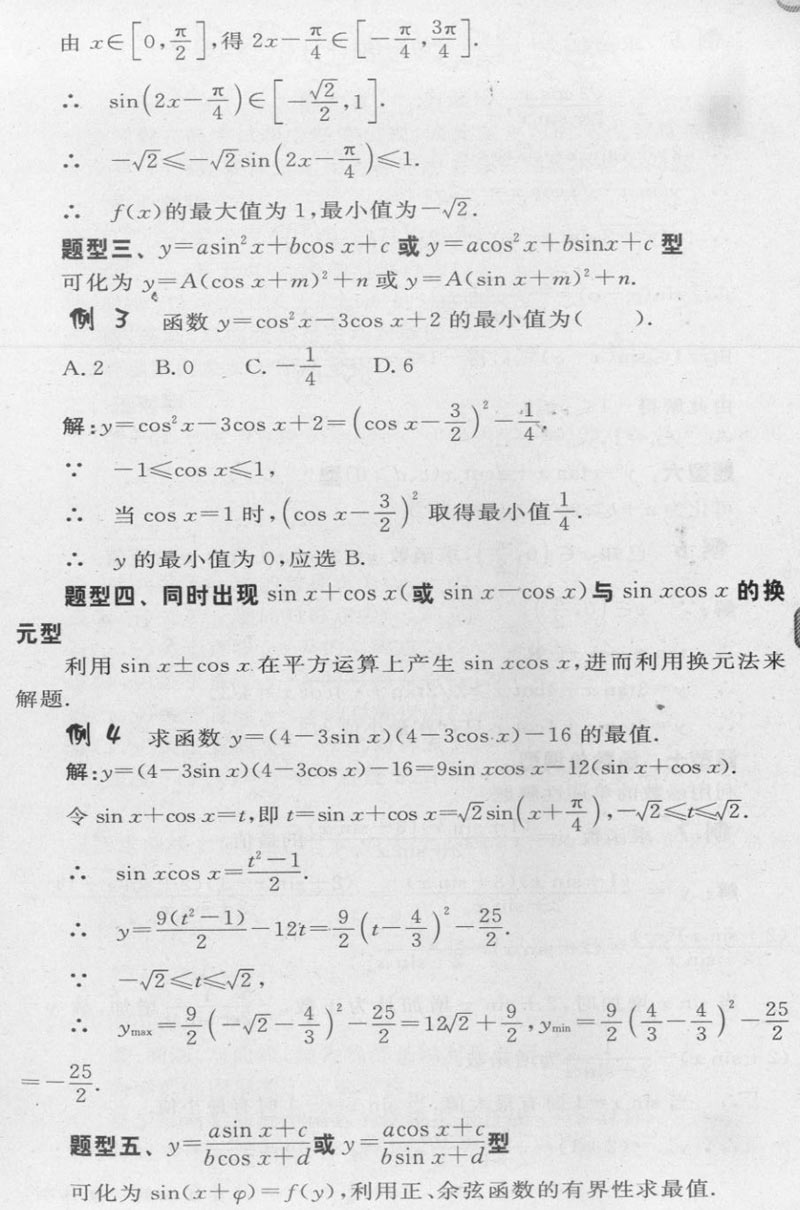 由 x∈[0,π/2],得 2x-π/4∈[-π/4,3π/4].
∴ sin(2x-π/4)∈[-√2/2,1].
∴ -√2≤-√2sin(2x-π/4)≤1.
∴ f(x)的最大值为 1,最小值为-√2.
题型三、y=asin²x+bcos x+c 或 y=acos²x+bsinx+c 型
可化为 y=A(cos x+m)²+n 或 y=A(sin x+m)²+n.
例 3 函数 y=cos²x-3cos x+2 的最小值为( ).
A. 2 B. 0 C. -1/4 D. 6
解:y=cos²x-3cos x+2=(cos x-3/2)²-1/4,
∵ -1≤cos x≤1,
∴ 当 cos x=1 时,(cos x-3/2)² 取得最小值1/4.
∴ y 的最小值为 0,应选 B.
题型四、同时出现 sin x+cos x(或 sin x-cos x)与 sin xcos x 的换
元型
利用 sin x±cos x 在平方运算上产生 sin xcos x,进而利用换元法来
解题.
例 4 求函数 y=(4-3sin x)(4-3cos x)-16 的最值.
解:y=(4-3sin x)(4-3cos x)-16=9sin xcos x-12(sin x+cos x).
令 sin x+cos x=t,即 t=sin x+cos x=√2sin(x+π/4),-√2≤t≤√2.
∴ sin xcos x=(t²-1)/2.
∴ y=9(t²-1)/2-12t=9/2(t-4/3)²-25/2.
∵ -√2≤t≤√2,
∴ ymax=9/2(-√2-4/3)²-25/2=12√2+9/2,ymin=9/2(4/3-4/3)²-25/2
=-25/2.
题型五、y=(asin x+c)/(bcos x+d)或 y=(acos x+c)/(bsin x+d)型
可化为 sin(x+φ)=f(y),利用正、余弦函数的有界性求最值.